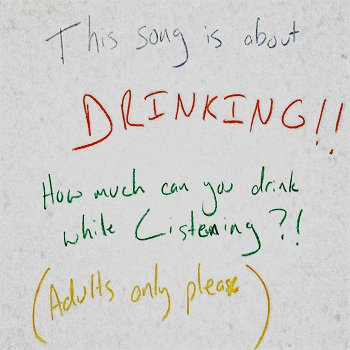 This song is about
DRINKING!!
How much can you drink
while Listening?!
(Adults only please)